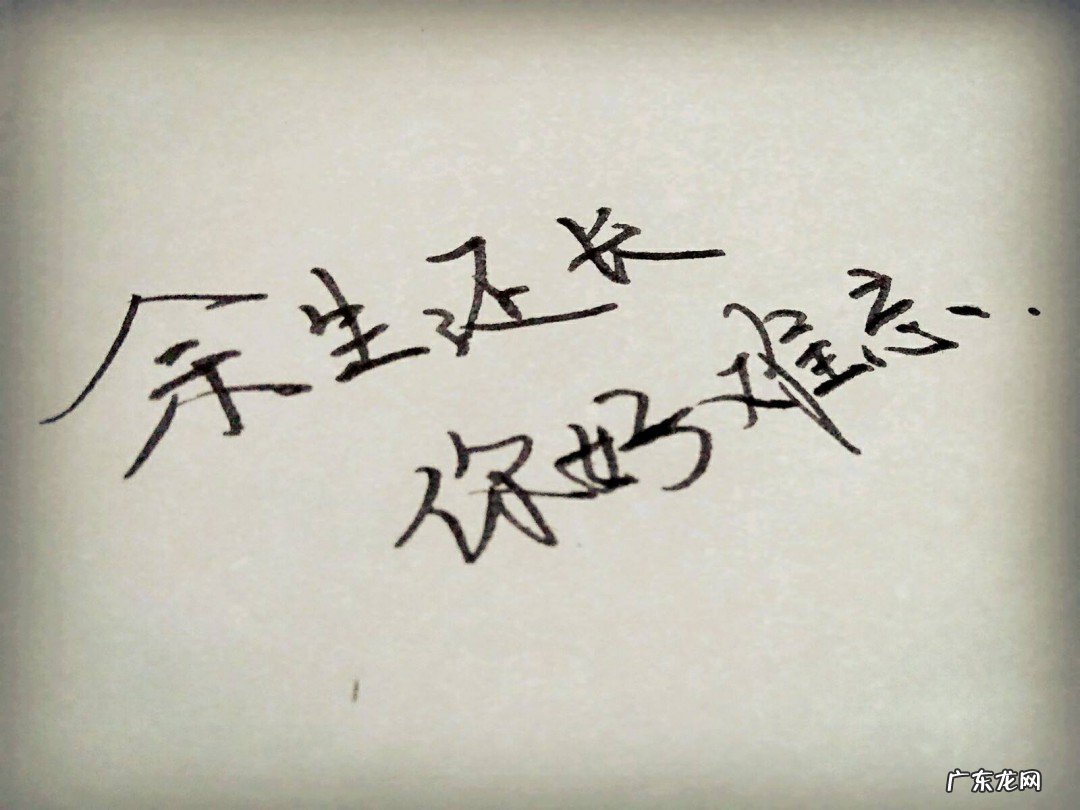 余生还长
你好难忘...
广东龙网